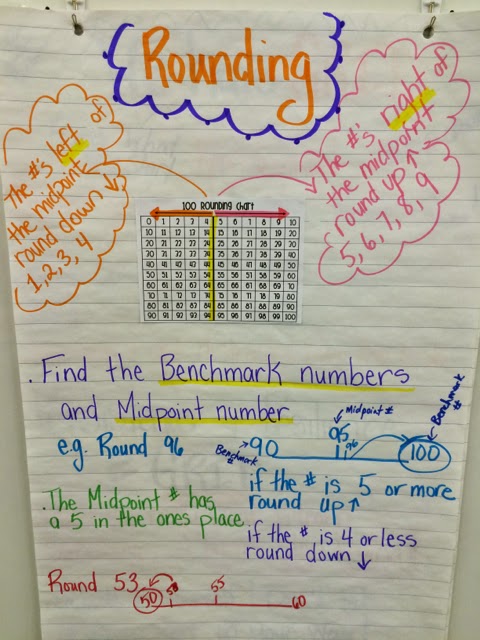 Rounding
The #'s left of
the midpoint
round down ↓
1, 2, 3, 4
The #'s right of
the midpoint
round up ↑
5, 6, 7, 8, 9
100 Rounding Chart
0 1 2 3 4 5 6 7 8 9 10
10 11 12 13 14 15 16 17 18 19 20
20 21 22 23 24 25 26 27 28 29 30
30 31 32 33 34 35 36 37 38 39 40
40 41 42 43 44 45 46 47 48 49 50
50 51 52 53 54 55 56 57 58 59 60
60 61 62 63 64 65 66 67 68 69 70
70 71 72 73 74 75 76 77 78 79 80
80 81 82 83 84 85 86 87 88 89 90
90 91 92 93 94 95 96 97 98 99 100
. Find the Benchmark numbers
and Midpoint number
e.g. Round 96
Midpoint #
Benchmark
#
Benchmark
#
90 95 96 100
if the # is 5 or more
round up ↑
. The Midpoint # has
a 5 in the ones place
if the # is 4 or less
round down ↓
Round 53
50 53 55 60